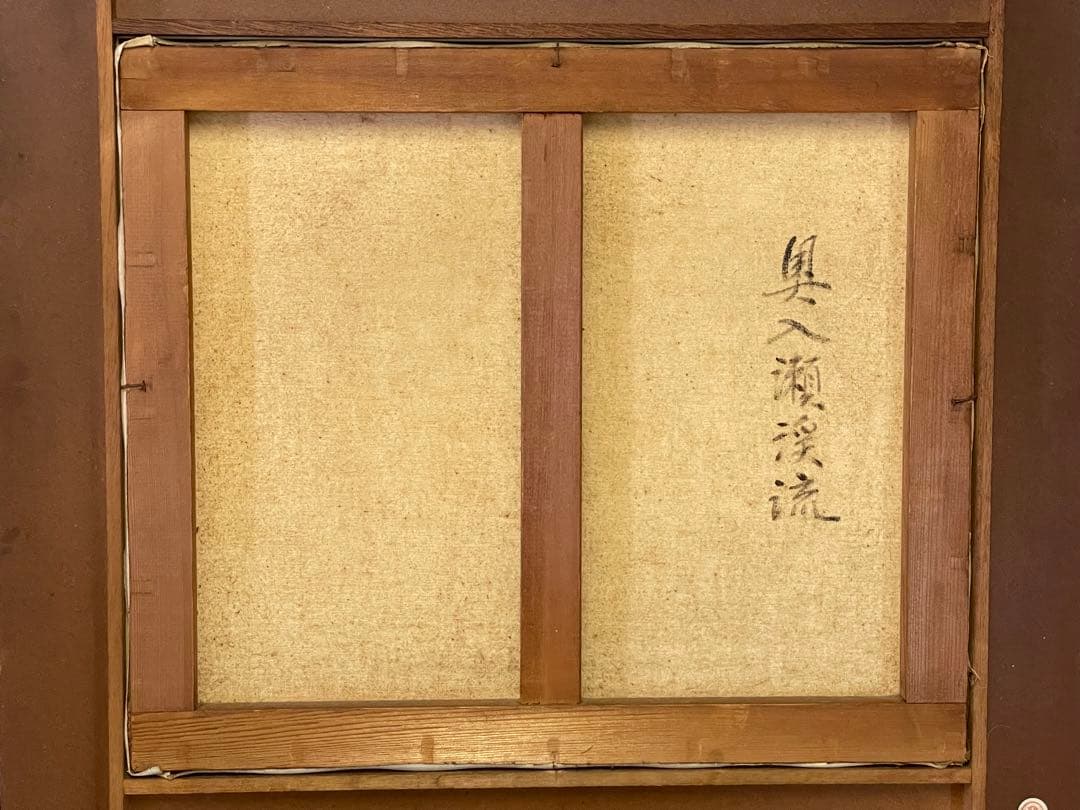 奥入瀬渓流